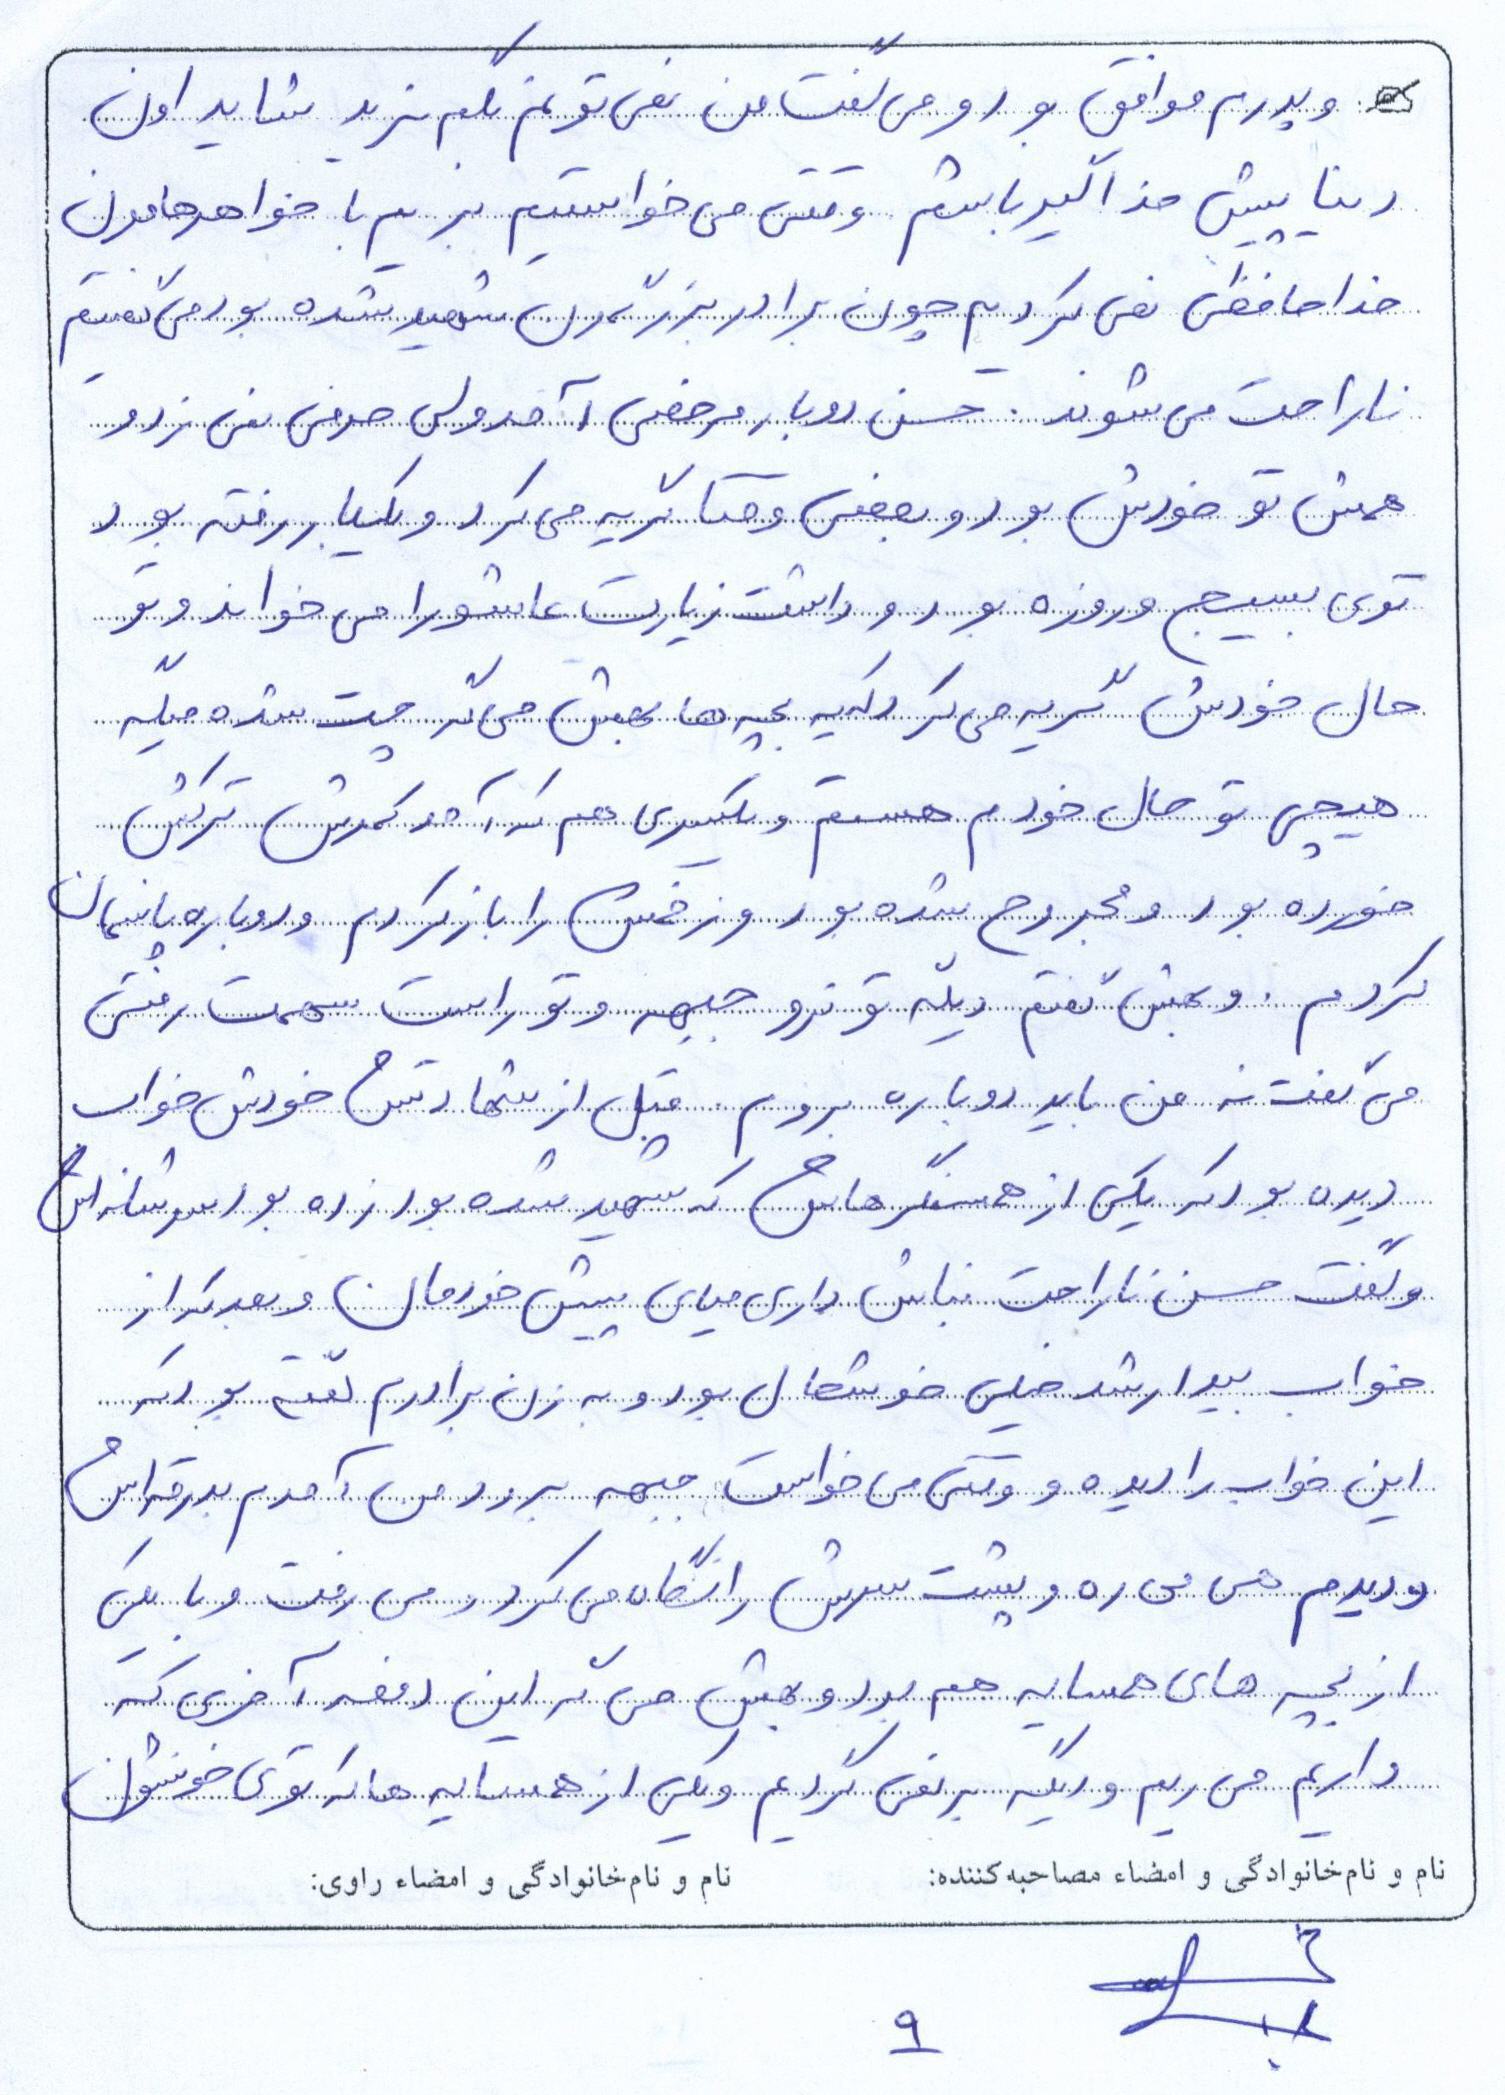 و پدرم موافق بود و می گفت من نمی تونم بگم نرید شاید اون
دنیا پیش خدا گیر باشم وقتی می خواستیم بریم با خواهرهامون
خداحافظی نمی کردیم چون برادر بزرگمون شهید شده بود می گفتیم
ناراحت می شوند. حسن دوبار مرخصی آمد ولی حرفی نمی زد و
همش تو خودش بود و بعضی وقتا گریه می کرد و یکبار رفته بود
توی بسیج و روزه بود و داشت زیارت عاشورا می خواند و تو
حال خودش گریه می کرد که یه بچه ها بهش می گه چت شده میگه
هیچی تو حال خودم هستم و یکسری هم که آمد کمرش ترکش
خورده بود و مجروح شده بود و زخمش را باز کردم و دوباره پانسمان
کردم. و بهش گفتم دیگه تو نرو جبهه و تو راست سهمت رفتی
می گفت نه من باید دوباره بروم. قبل از شهادتش خودش خواب
دیده بود که یکی از همسنگرهاش که شهید شده بود زده بود سرشانه اش
و گفت حسن ناراحت نباش داری میای پیش خودمان و بعد که از
خواب بیدار شد خیلی خوشحال بود و به زن برادرم گفته بود که
این خواب را دیده و وقتی می خواست جبهه برود من آمدم بدرقه اش
و دیدم هی می ره و پشت سرش را نگاه می کرد و می رفت و با یکی
از بچه های همسایه هم بود و بهش می گه این دفعه آخری که
داریم می ریم و دیگه بر نمی گردیم و یکی از همسایه ها که توی خونشون
نام و نام‌خانوادگی و امضاء مصاحبه‌کننده: نام و نام‌خانوادگی و امضاء راوی:
۹